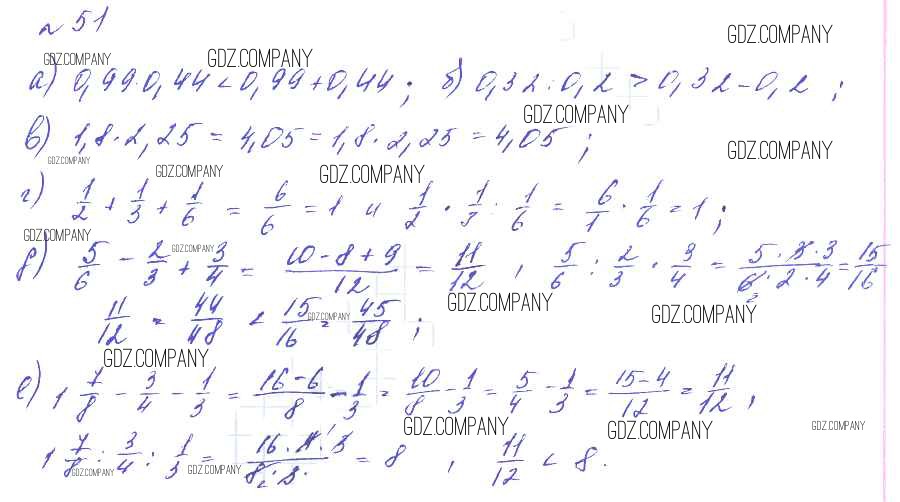 № 51
GDZ.COMPANY GDZ.COMPANY GDZ.COMPANY
а) 0,99·0,44 < 0,99+0,44; б) 0,32:0,2 > 0,32-0,2;
GDZ.COMPANY
в) 1,8·2,25 = 4,05 = 1,8·2,25 = 4,05;
GDZ.COMPANY GDZ.COMPANY GDZ.COMPANY GDZ.COMPANY
г) 1/2 + 1/3 + 1/6 = 6/6 = 1 и 1/2 · 1/3 : 1/6 = 6/1 · 1/6 = 1;
GDZ.COMPANY GDZ.COMPANY
д) 5/6 - 2/3 + 3/4 = (10-8+9)/12 = 11/12, 5/6 : 2/3 · 3/4 = (5·3·3)/(6·2·4) = 15/16
GDZ.COMPANY GDZ.COMPANY GDZ.COMPANY
11/12 = 44/48 < 15/16 = 45/48;
GDZ.COMPANY
е) 1 7/8 - 3/4 - 1/3 = (16-6)/8 - 1/3 = 10/8 - 1/3 = 5/4 - 1/3 = (15-4)/12 = 11/12,
GDZ.COMPANY GDZ.COMPANY GDZ.COMPANY
1 7/8 : 3/4 : 1/3 = = 8, 11/12 < 8.
GDZ.COMPANY GDZ.COMPANY